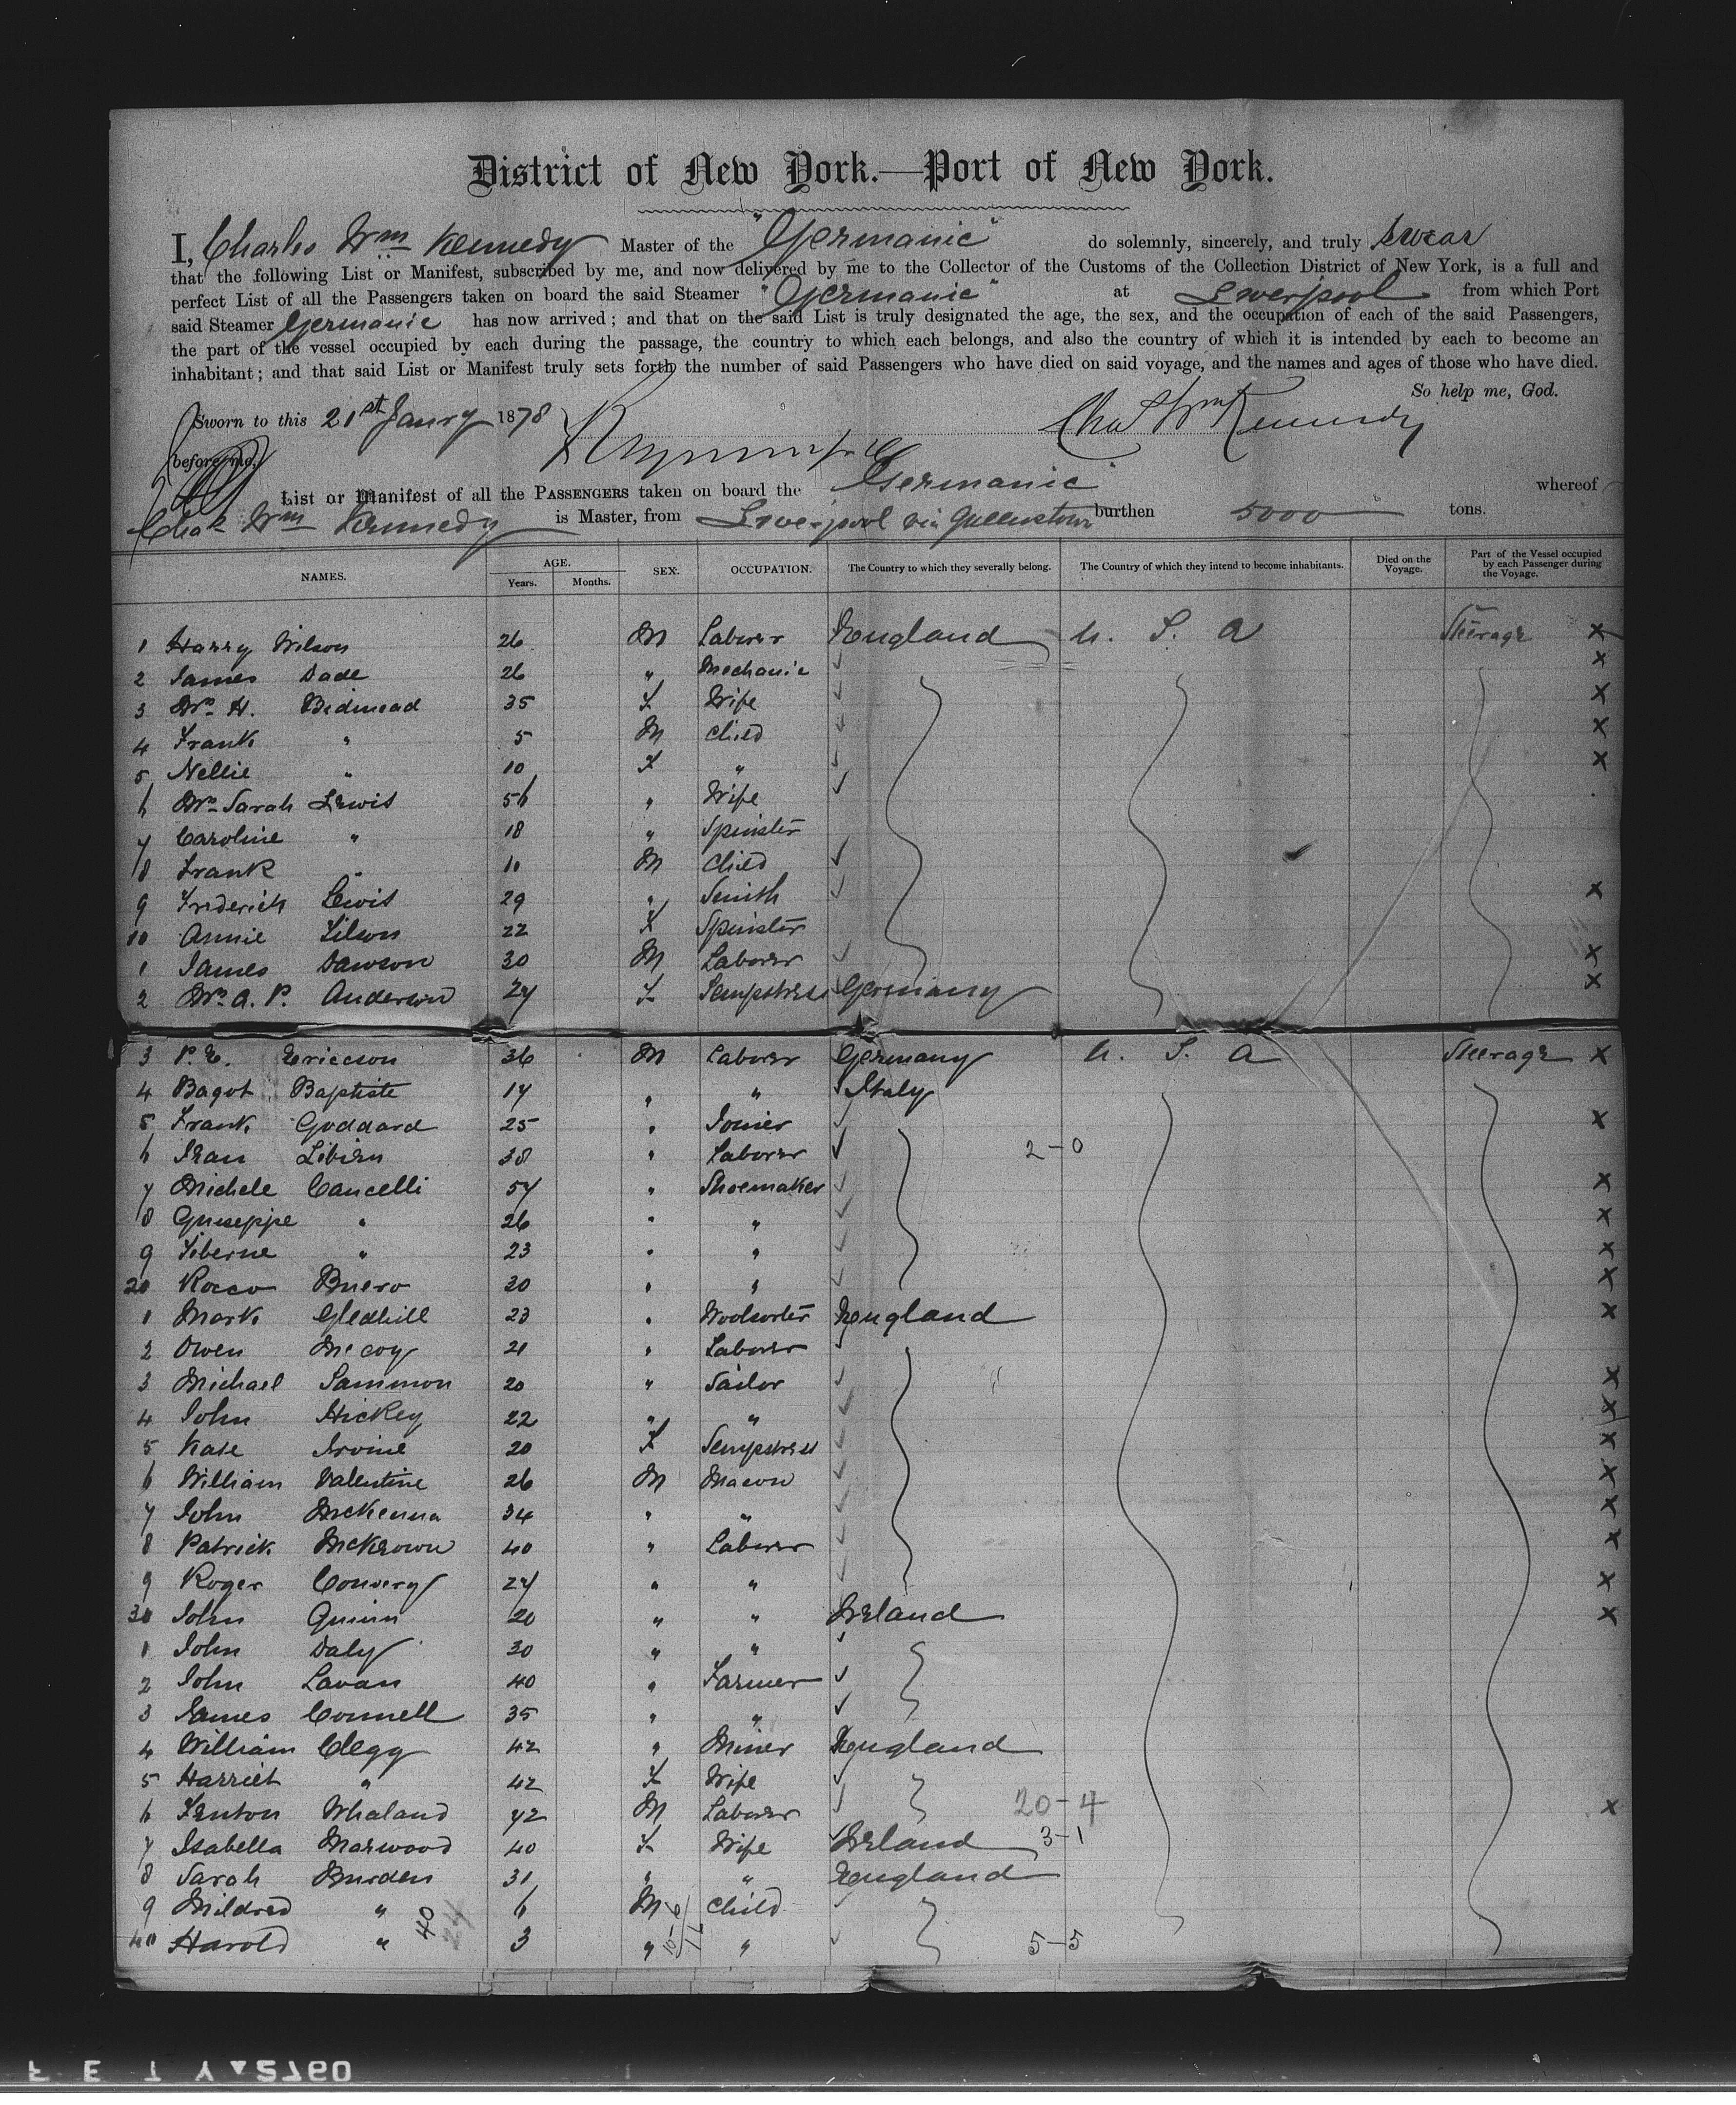 District of New York.—Port of New York.
I, Charles Wm Kennedy Master of the "Germanic" do solemnly, sincerely, and truly swear
that the following List or Manifest, subscribed by me, and now delivered by me to the Collector of the Customs of the Collection District of New York, is a full and
perfect List of all the Passengers taken on board the said Steamer "Germanic" at Liverpool from which Port
said Steamer Germanic has now arrived; and that on the said List is truly designated the age, the sex, and the occupation of each of the said Passengers,
the part of the vessel occupied by each during the passage, the country to which each belongs, and also the country of which it is intended by each to become an
inhabitant; and that said List or Manifest truly sets forth the number of said Passengers who have died on said voyage, and the names and ages of those who have died.
So help me, God.
Sworn to this 21st Janry 1878 Chas Wm Kennedy
before me,
List or Manifest of all the PASSENGERS taken on board the Germanic whereof
Chas Wm Kennedy is Master, from Liverpool via Queenstown burthen 5000 tons.
NAMES. AGE. Years. Months. SEX. OCCUPATION. The Country to which they severally belong. The Country of which they intend to become inhabitants. Died on the Voyage. Part of the Vessel occupied by each Passenger during the Voyage.
1 Harry Wilson 26 M Laborer England U. S. A Steerage X
2 James Dade 26 " Mechanic ✓ X
3 Mrs H. Bidmead 35 F Wife ✓ X
4 Frank " 5 M Child ✓ X
5 Nellie " 10 F " ✓ X
6 Mrs Sarah Lewis 56 " Wife ✓
7 Caroline " 18 " Spinster
8 Frank " 11 M Child ✓
9 Frederick Lewis 29 " Smith ✓ X
10 Annie Filson 22 F Spinster
1 James Dawson 30 M Laborer ✓ X
2 Mrs A. P. Anderson 27 F Sempstress Germany X
3 P. E. Ericcson 36 M Laborer Germany U. S. A Steerage X
4 Bagot Baptiste 17 " " ✓ Italy
5 Frank Goddard 25 " Joiner ✓ X
6 Jean 38 " Laborer ✓ 2-0
7 Michele Cancelli 57 " Shoemaker ✓ X
8 Guiseppe " 26 " " ✓ X
9 Liberne " 23 " " ✓ X
20 Rocco Buero 30 " " ✓ X
1 Mark Gledhill 23 " Woolsorter England X
2 Owen McCoy 21 " Laborer ✓
3 Michael Sammon 20 " Sailor ✓ X
4 John Hickey 22 " " ✓ X
5 Kate Irvine 20 F Sempstress ✓ X
6 William Valentine 26 M Mason ✓ X
7 John McKenna 34 " " ✓ X
8 Patrick McKeown 40 " Laborer ✓ X
9 Roger Convery 27 " " ✓ X
30 John Quinn 20 " " Ireland X
1 John Daly 30 " " ✓
2 John Lavan 40 " Farmer ✓
3 James Connell 35 " " ✓
4 William Clegg 42 " Miner England
5 Harriet " 42 F Wife ✓
6 Fenton Whaland 42 M Laborer ✓ 20-4 X
7 Isabella Marwood 40 F Wife ✓ Ireland 3-1
8 Sarah Burden 31 " " England
9 Mildred " 6 M Child ✓
40 Harold " 3 " " ✓ 5-5
40
24